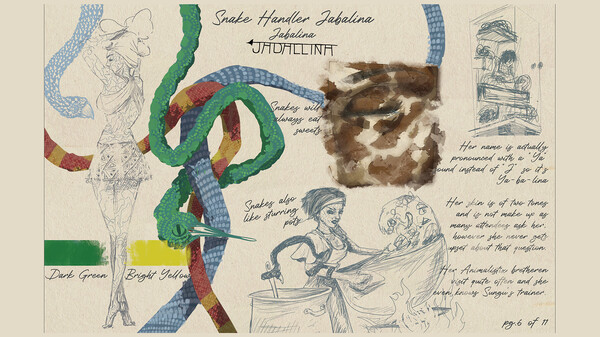 Snake Handler Jabalina
Jabalina
JABALLINA
Snakes will
always eat
sweets
Her name is actually
pronounced with a "Ya"
sound instead of "J" so it's
Ya-ba-lina
Snakes also
like sturring
pots
Her skin is of two tones
and is not make up as
many attendees ask her,
however she never gets
upset about that question.
Her Animalistic bretheren
visit quite often and she
even knows Sungui's trainer.
Dark Green
Bright Yellow
pg.6 of 11